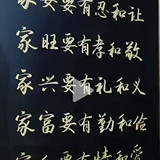 家安要有忍和让
家旺要有孝和敬
家兴要有礼和义
家富要有勤和俭